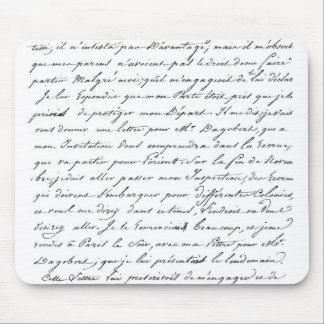 tesse, il n'insista pas Davantage, mais il m'observa
que mes parens n'avoient pas le droit de me faire
partir Malgré moi; qu'il m'engageoit de lui déclar
Je lui répondis que mon Parti étoit pris que je le
priois de protéger mon Départ. Il me dit, je vais
vous donner une lettre pour Mr. Dagobert, qui a
mon Invitation Vous comprendra dans la
qui va partir pour l'orient. Sur la fin de Novem
bre j'irai aller passer mon Inspection, des
qui doivent s'embarquer pour differentes Colonies,
et vous me direz dans ce tems, l'endroit ou vous
désirez aller. Je le remerciai Beaucoup, et je me
rendis à Paris le Soir, avec ma Lettre pour Mr.
Dagobert, que je lui présentai le lendemain.
Cette Lettre lui prescrivoit de m'engager et de